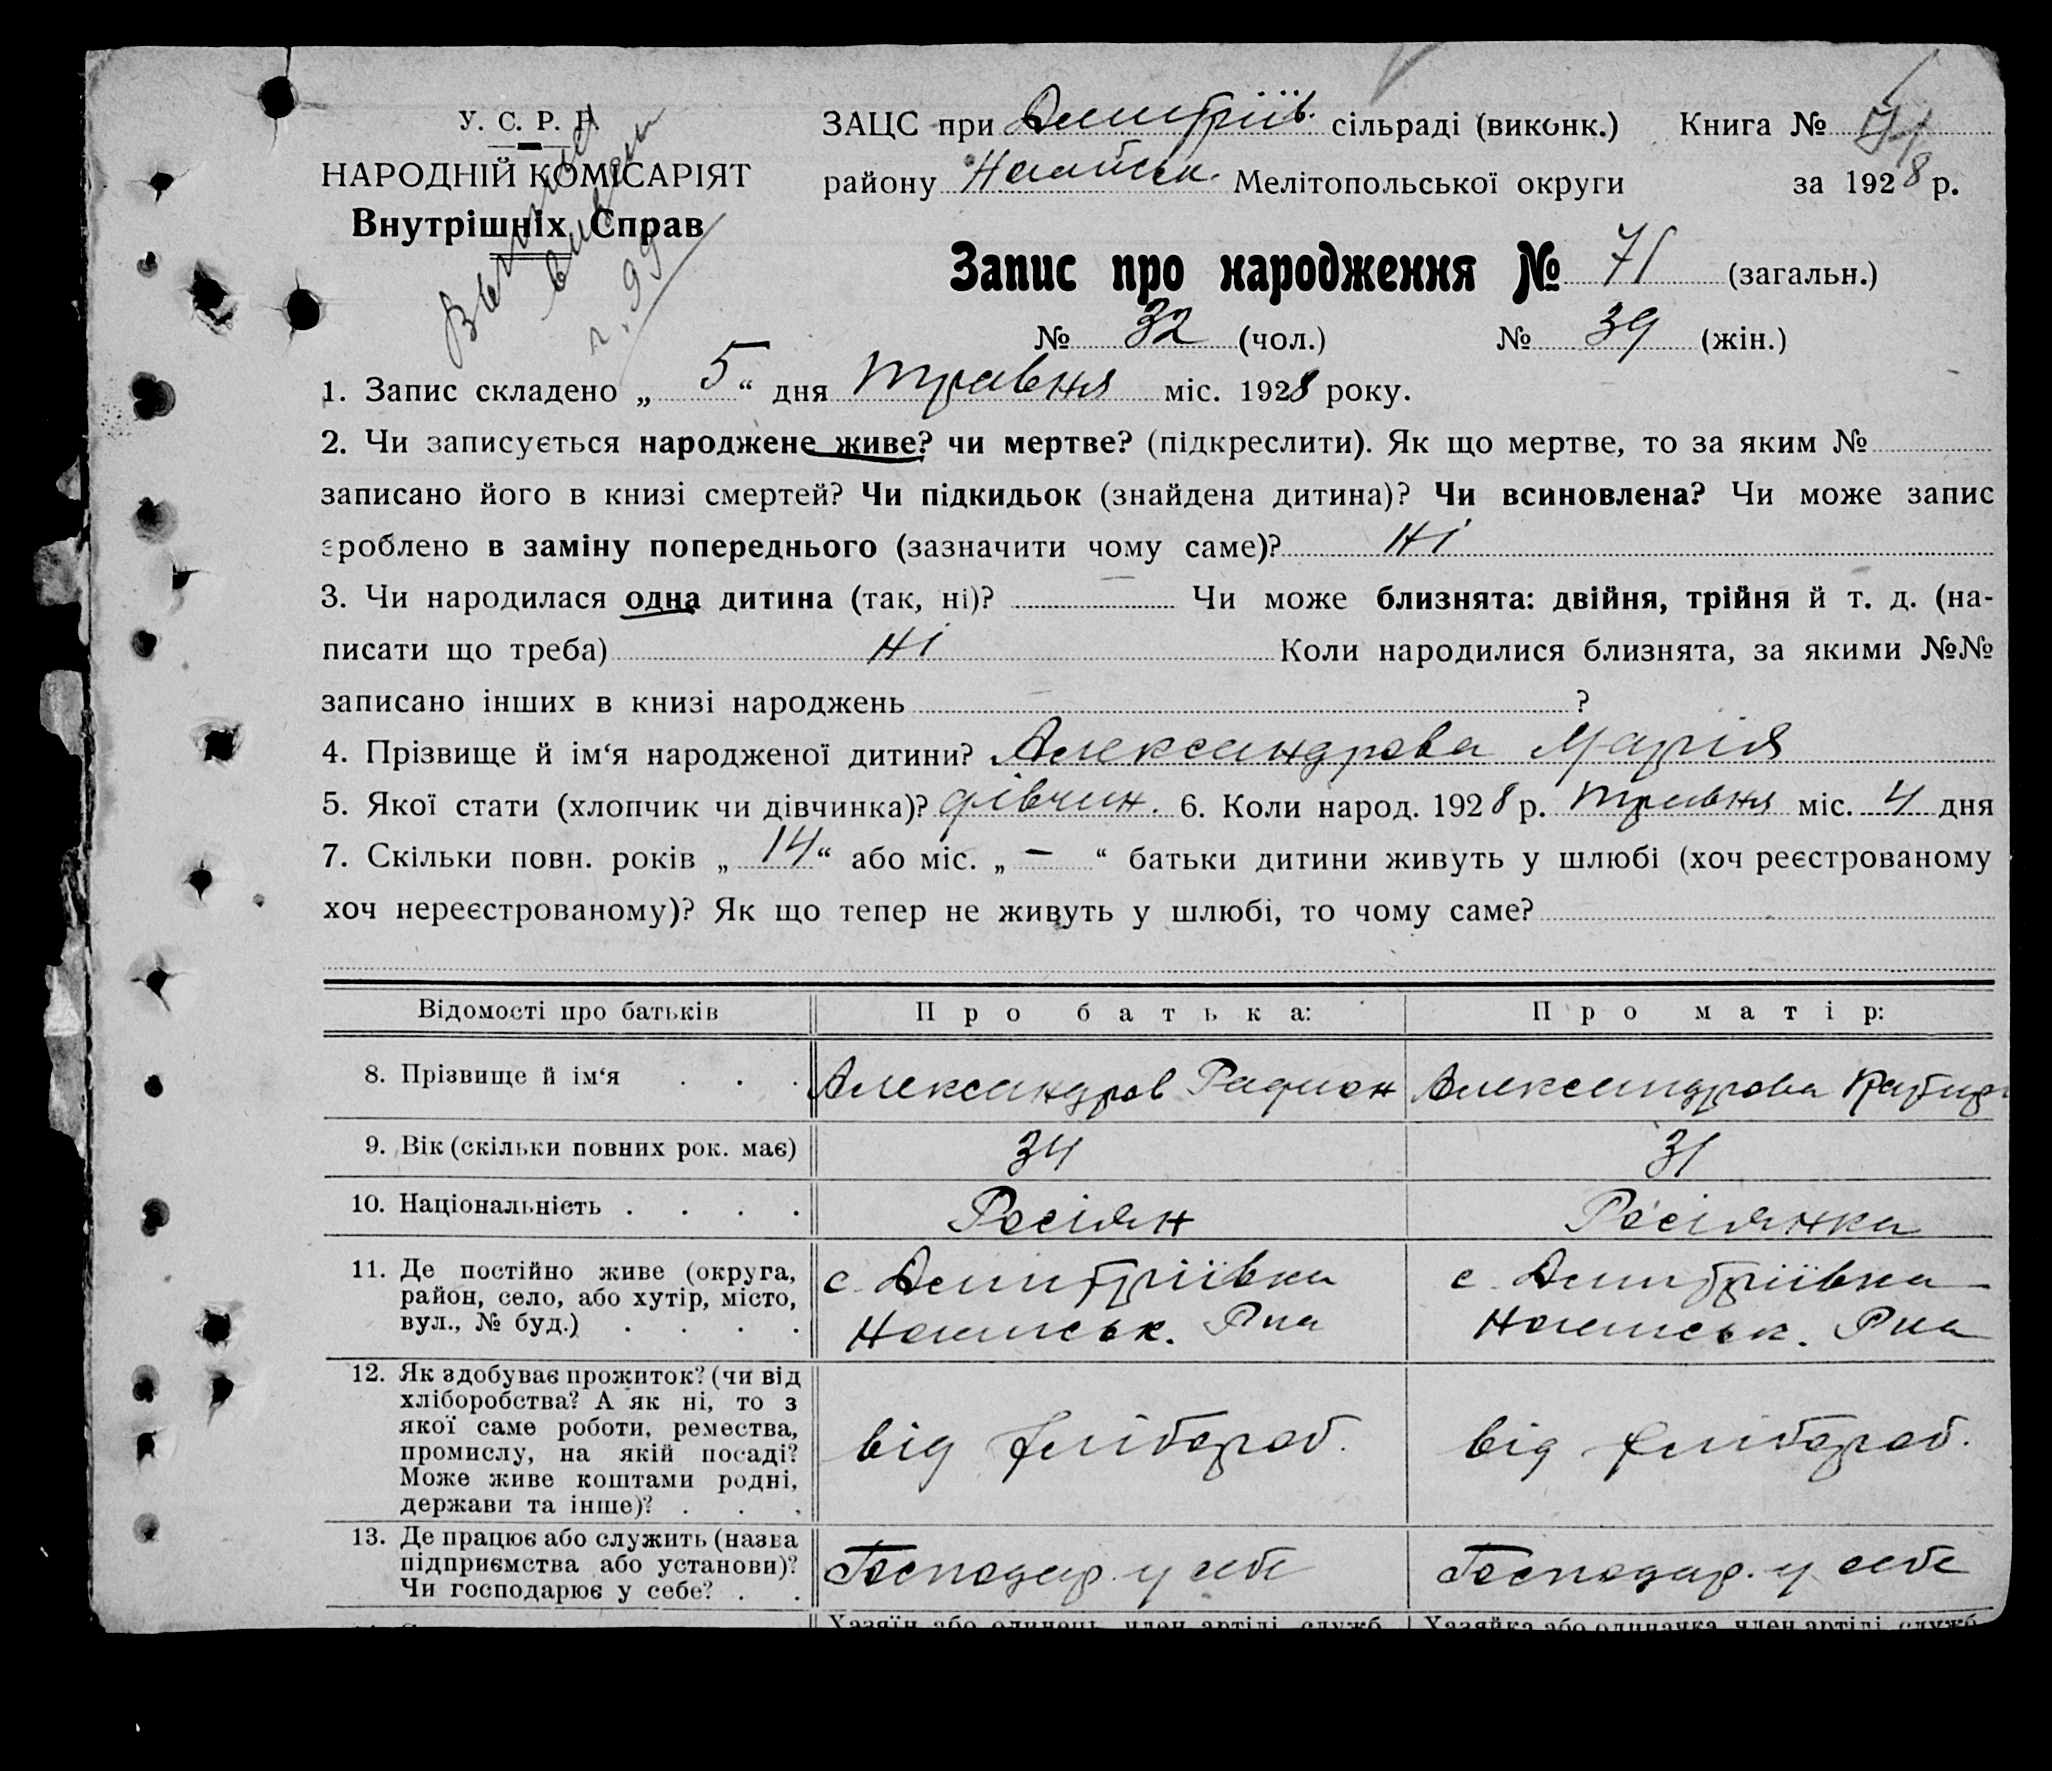 У. С. Р. Р.
НАРОДНІЙ КОМІСАРІЯТ
Внутрішніх Справ
ЗАЦС при Дмитріїв. сільраді (виконк.) Книга №
району Мелітопольської округи за 1928 р.
Запис про народження № 71 (загальн.)
№ 32 (чол.) № 39 (жін.)
1. Запис складено „ 5 “ дня травня міс. 1928 року.
2. Чи записується народжене живе? чи мертве? (підкреслити). Як що мертве, то за яким №
записано його в книзі смертей? Чи підкидьок (знайдена дитина)? Чи всиновлена? Чи може запис
зроблено в заміну попереднього (зазначити чому саме)? Ні
3. Чи народилася одна дитина (так, ні)? — Чи може близнята: двійня, трійня й т. д. (на-
писати що треба) Ні Коли народилися близнята, за якими №№
записано інших в книзі народжень — ?
4. Прізвище й ім‘я народженої дитини? Александрова Марія
5. Якої стати (хлопчик чи дівчинка)? дівчин. 6. Коли народ. 1928 р. травня міс. 4 дня
7. Скільки повн. років „ 14 “ або міс. „ — “ батьки дитини живуть у шлюбі (хоч реєстрованому
хоч нереєстрованому)? Як що тепер не живуть у шлюбі, то чому саме?
Відомості про батьків Про батька: Про матір:
8. Прізвище й ім‘я . . . Александров Радион Александрова
9. Вік (скільки повних рок. має) 34 31
10. Національність . . . . Росіян Росіянка
11. Де постійно живе (округа,
район, село, або хутір, місто,
вул., № буд.) . . . .
с. Дмитріївка
Р-на
с. Дмитріївка
Р-на
12. Як здобуває прожиток? (чи від
хліборобства? А як ні, то з
якої саме роботи, ремества,
промислу, на якій посаді?
Може живе коштами родні,
держави та інше)? . . .
від хлібороб.
від хлібороб.
13. Де працює або служить (назва
підприємства або установи)?
Чи господарює у себе? . .
Господар. у себе
Господар. у себе
Хазяїн або одинець, член артілі, служб.
Хазяйка або одиначка, член артілі, служб.